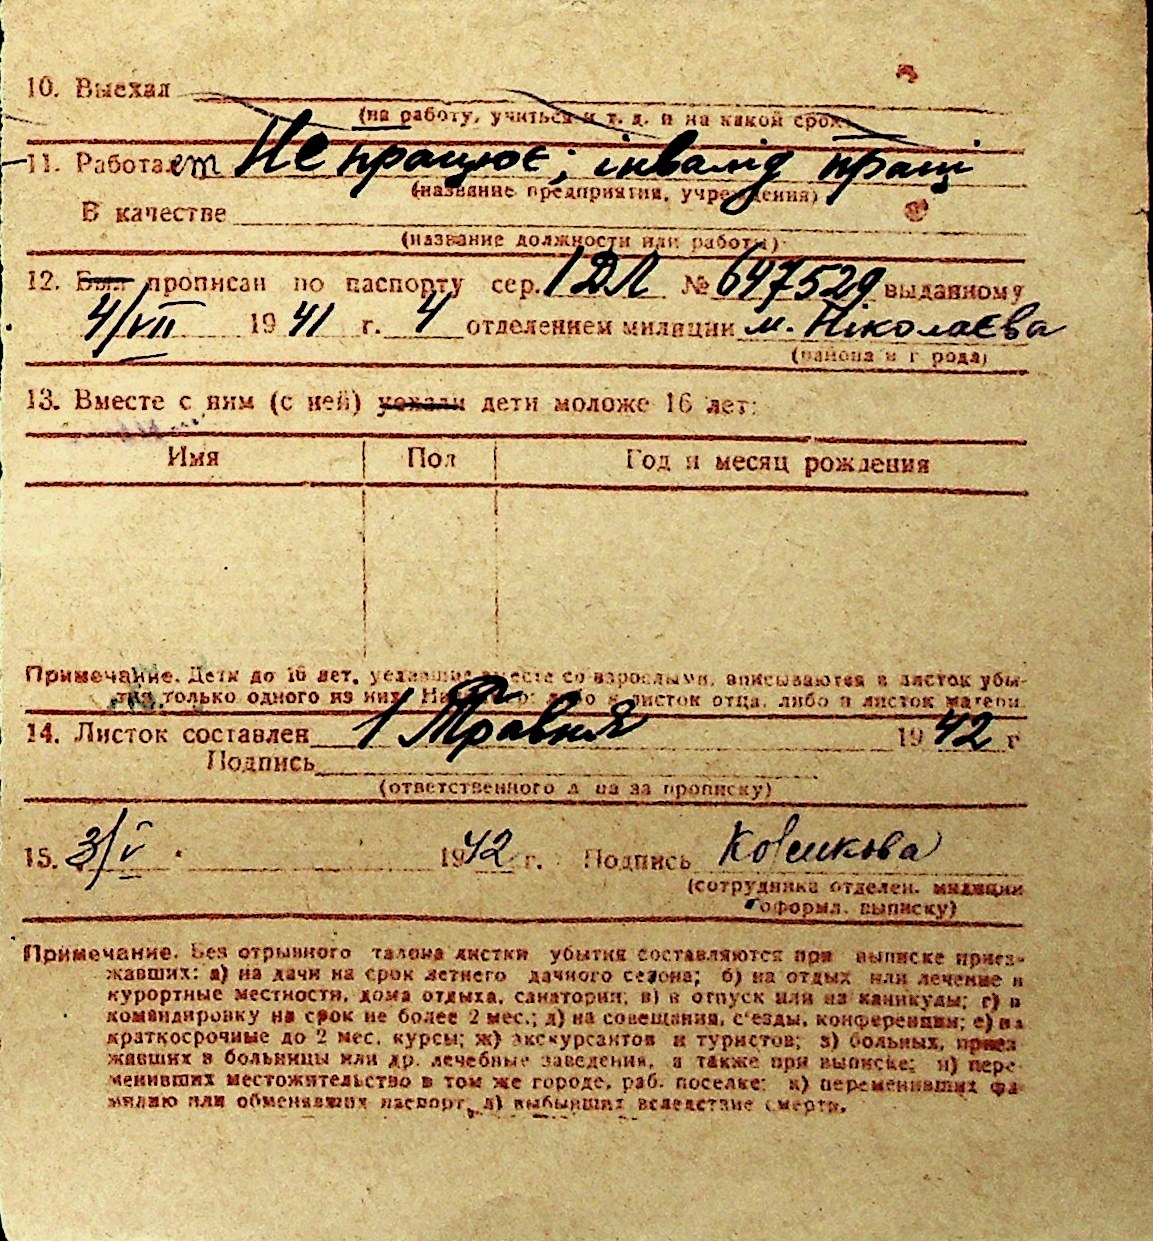 10. Выехал
(на работу, учиться и т. д. и на какой срок)
11. Работает Не працює; інвалід праці
(название предприятия, учреждения)
В качестве
(название должности или работы)
12. Был прописан по паспорту сер. І ДЛ № 647529 выданному
4/VII 1941 г. 4 отделением милиции м. Ніколаєва
(района и города)
13. Вместе с ним (с ней) уехали дети моложе 16 лет:
Имя Пол Год и месяц рождения
Примечание. Дети до 16 лет, уехавшие вместе со взрослыми, вписываются в листок убы-
тия только одного из них. либо в листок отца, либо в листок матери.
14. Листок составлен 1 Травня 1942 г
Подпись
(ответственного лица за прописку)
15. 3/V 1942 г. Подпись
(сотрудника отделен. милиции
оформл. выписку)
Примечание. Без отрывного талона листки убытия составляются при выписке приез-
жавших: а) на дачи на срок летнего дачного сезона; б) на отдых или лечение в
курортные местности, дома отдыха, санатории; в) в отпуск или на каникулы; г) в
командировку на срок не более 2 мес.; д) на совещания, с'езды, конференции; е) на
краткосрочные до 2 мес. курсы; ж) экскурсантов и туристов; з) больных, приез-
жавших в больницы или др. лечебные заведения, а также при выписке: и) пере-
менивших местожительство в том же городе, раб. поселке; к) переменивших фа-
милию или обменявших паспорт, л) выбывших вследствие смерти.